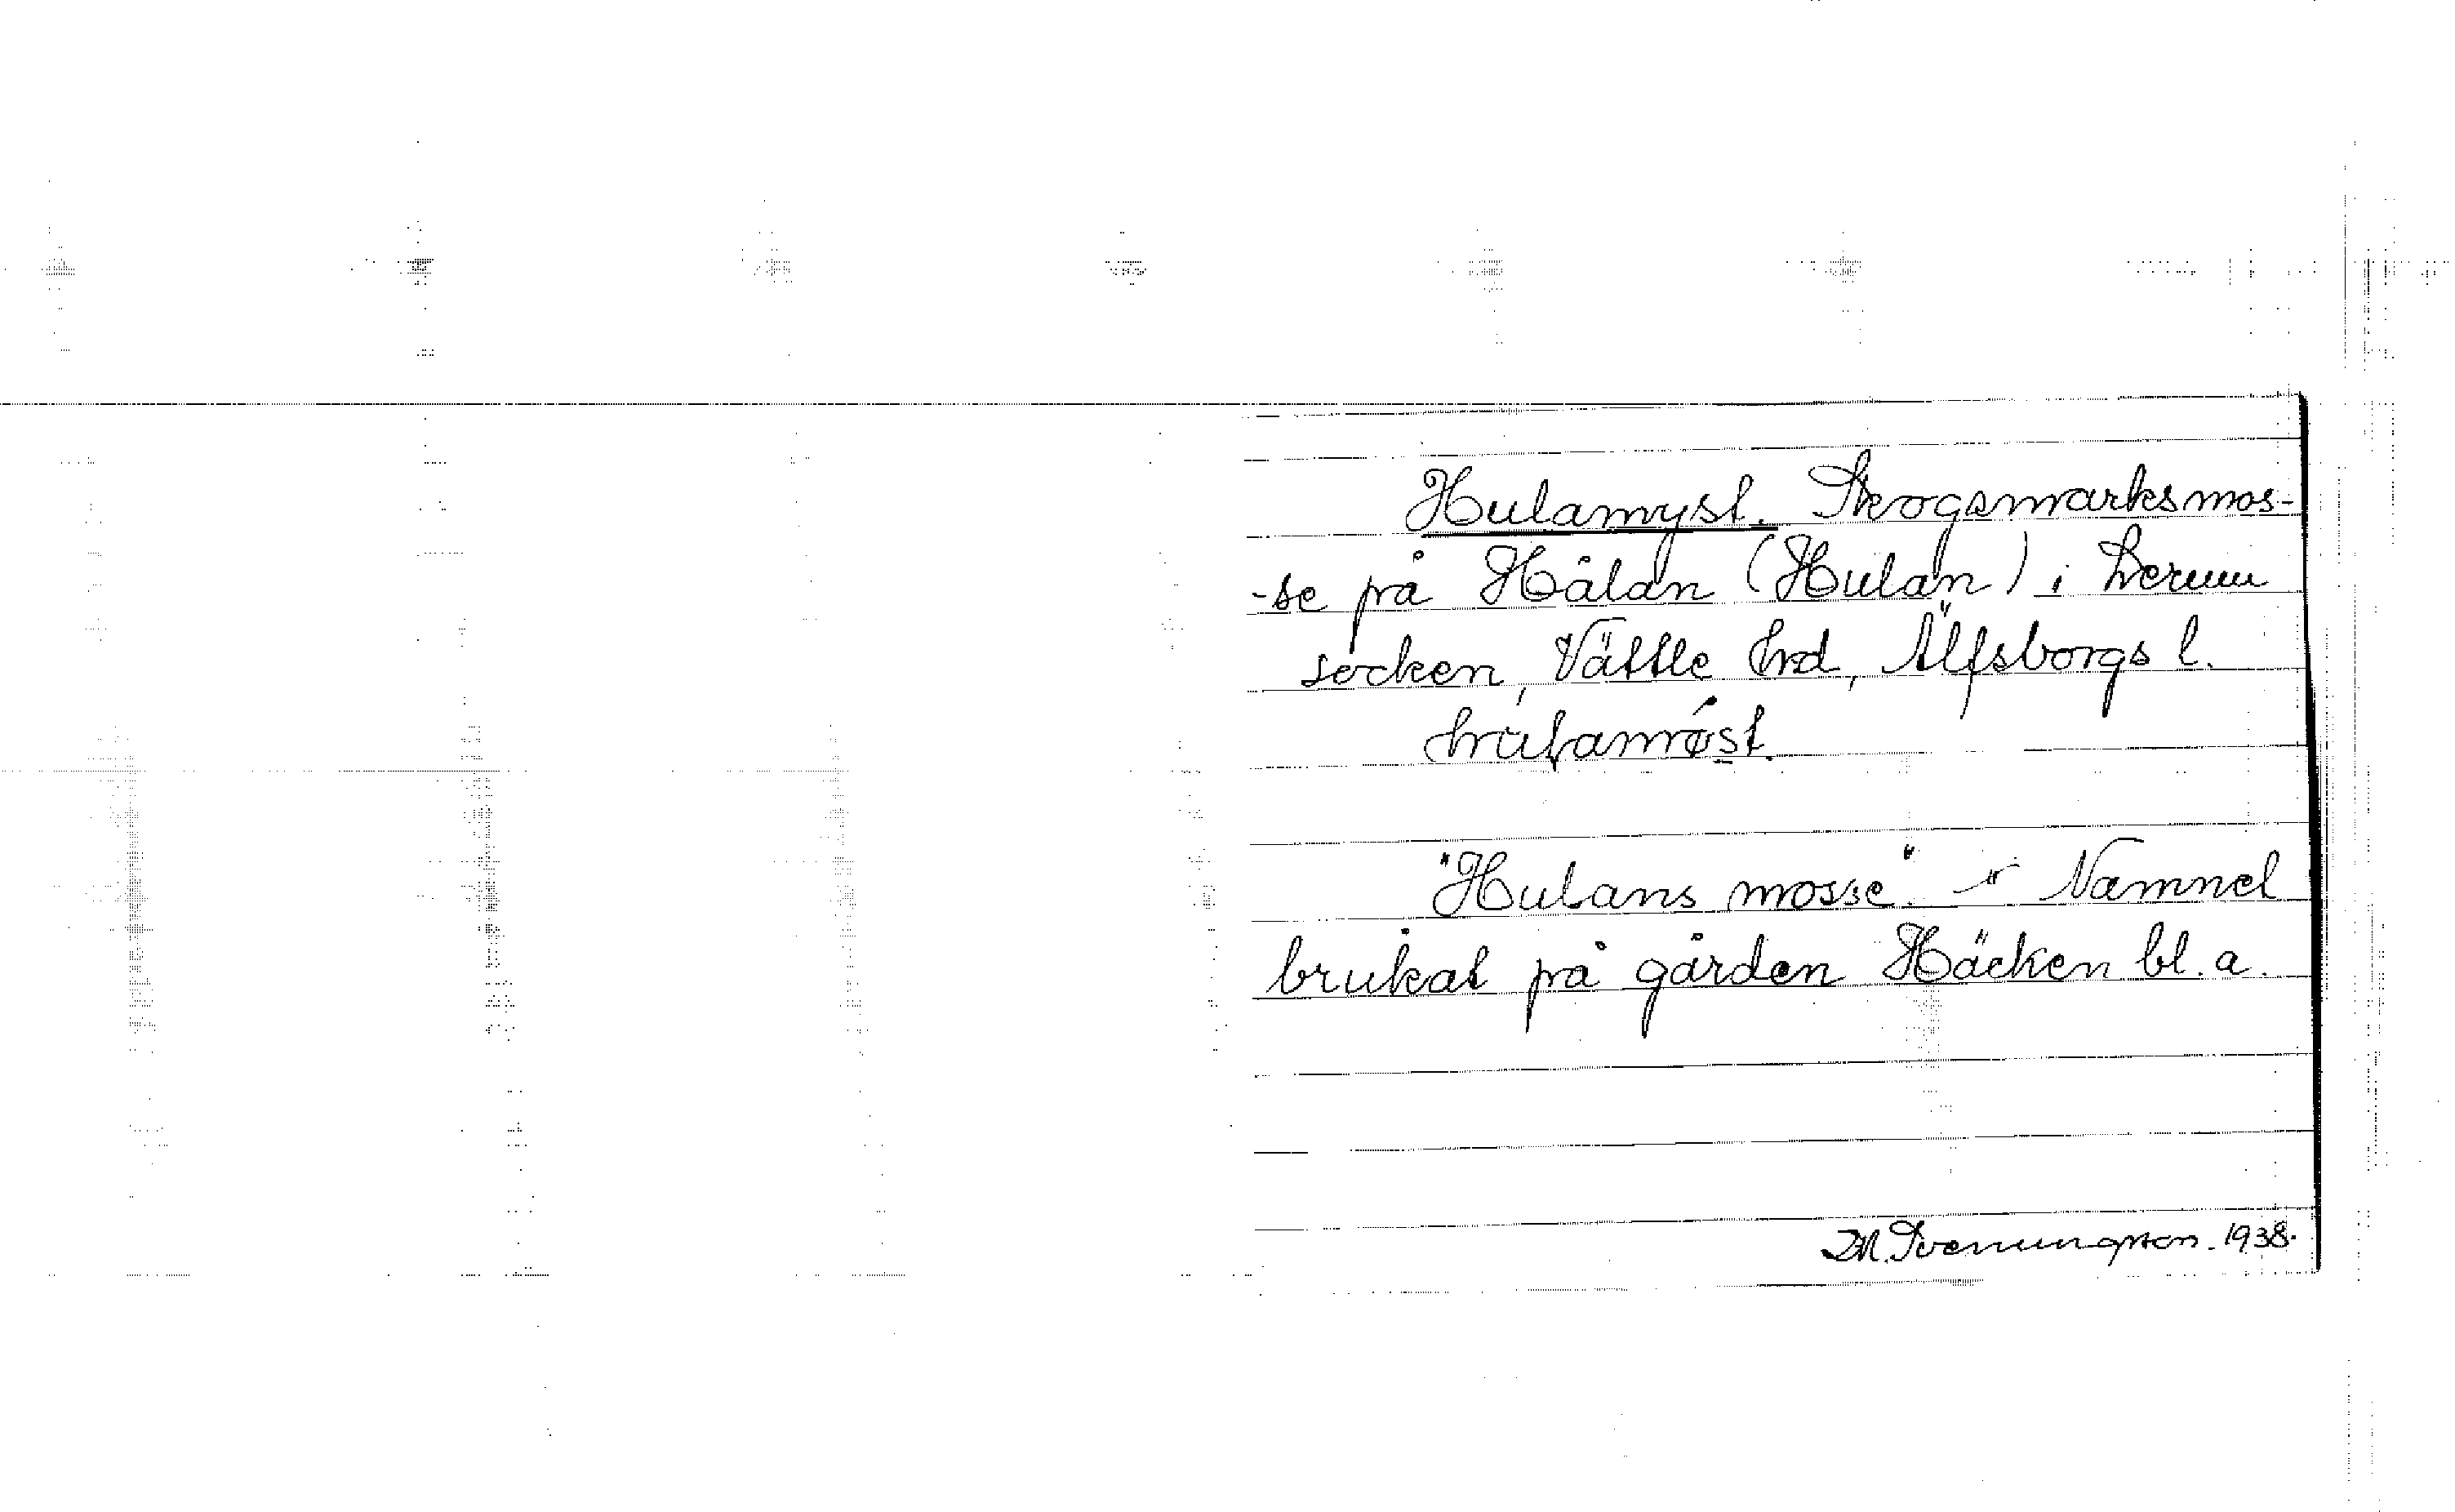 Hulamyst. Skogsmarksmos-
-se på Hålan (Hulan) i Lerum
socken, Vättle hrd, Älfsborgs l.
"Hulans mosse." Namnet
brukat på gården Häcken bl. a.
1938.